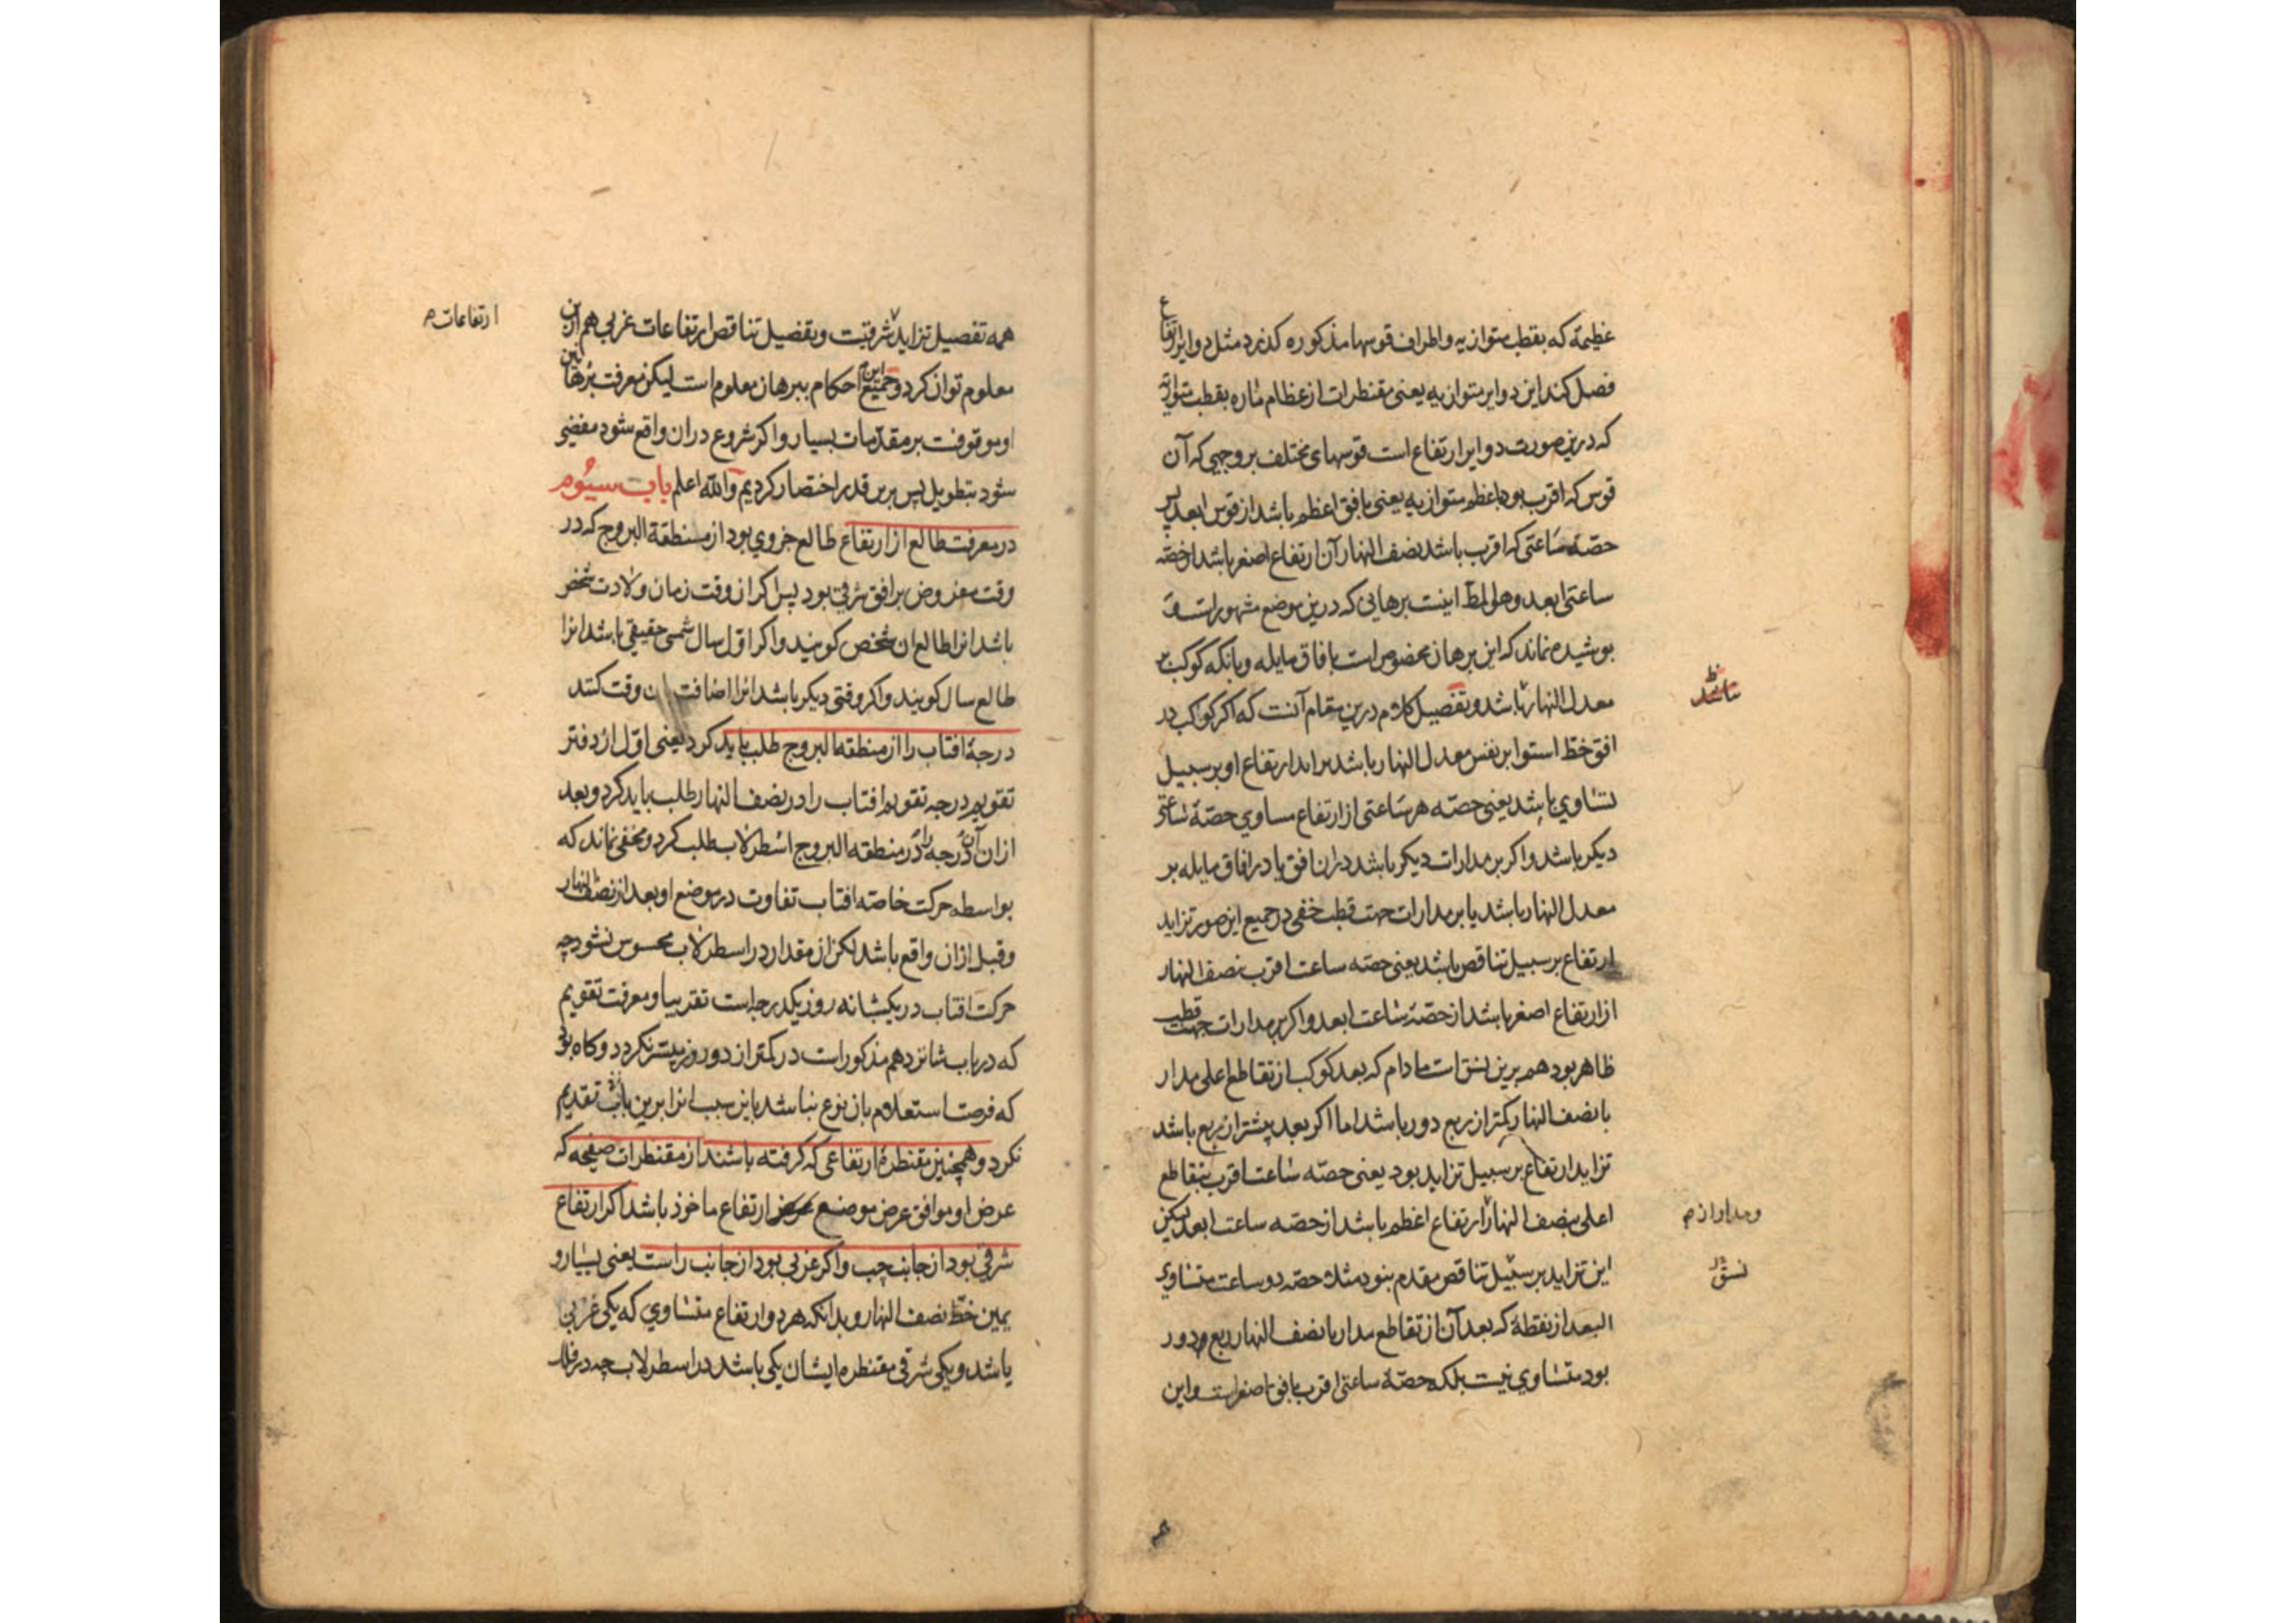 عظیمة که بقطب متوازیه و اطراف قوسها مذکوره کذرد مثل دوایر ارتفاع
فصل کند این دوایر متوازیه یعنی مقنطرات از عظام ماره بقطب متوازیه
که درین صورت دوایر ارتفاع است قوسهای مختلف بر وجهی که آن
قوس که اقرب بود باعظم متوازیه یعنی بافق اعظم باشد از قوس ابعد پس
حصّه ساعتی که اقرب باشد بنصف النهار آن ارتفاع اصغر باشد از حصّه
ساعتی ابعد و هو المط اینست برهانی که درین موضع مشهور است و
پوشیده نماند که این برهان مخصوص است بافاق مایله و بانکه کوکب بر
معدل النهار باشد و تفصیل کلام درین مقام آنست که اکر کواکب در
نباشد ظ
افق خط استوا بر نفس معدل النهار باشد تزاید ارتفاع او بر سبیل
تساوی باشد یعنی حصّه هر ساعتی از ارتفاع مساوی حصّهٔ ساعتی
دیکر باشد و اکر بر مدارات دیکر باشد در ان افق یا در افاق مایله بر
معدل النهار باشد یا بر مدارات جهت قطب خفی در جمیع این صور تزاید
ارتفاع بر سبیل تناقص باشد یعنی حصّه ساعت اقرب بنصف النهار
از ارتفاع اصغر باشد از حصّهٔ ساعت ابعد و اکر بر مدارات جهت قطب
ظاهر بود هم برین نسق است مادام که بعد کوکب از تقاطع اعلی مدار
با نصف النهار کمتر از ربع دور باشد اما اکر بعد بیشتر از ربع باشد
تزاید ارتفاع بر سبیل تزاید بود یعنی حصّه ساعت اقرب بتقاطع
اعلی بنصف النهار از ارتفاع اعظم باشد از حصّه ساعت ابعد لیکن
این تزاید بر سبیل تناقص مقدم نبود مثلا حصّه دو ساعت متساوی
نسق
البعد از نقطهٔ که بعد آن از تقاطع مدار با نصف النهار ربع دور
بود متساوی نیست بلکه حصّهٔ ساعتی اقرب بافق اصغر است و این
همه تفصیل تزاید شرقیت و بتفصیل تناقص ارتفاعات غربی هم ازین
ارتفاعات
معلوم توان کرد و جمیع این احکام ببرهان معلوم است لیکن معرفت براهین
او موقوفت بر مقدّمات بسیار و اکر شروع دران واقع شود مفضی
شود بتطویل پس برین قدر اختصار کردیم والله اعلم باب سیُوم
در معرفت طالع از ارتفاع طالع جزوی بود از منطقة البروج که در
وقت مفروض بر افق شرقی بود پس اکر ان وقت زمان ولادت شخص
باشد انرا طالع ان شخص کویند و اکر اوّل سال شمسی حقیقی باشد انرا
طالع سال کویند و اکر وقتی دیکر باشد انرا اضافت بان وقت کنند
درجهٔ افتاب را از منطقه البروج طلب باید کرد یعنی اوّل از دفتر
تقویم درجه تقویم افتاب را در نصف النهار طلب باید کرد و بعد
ازان آن درجه را در منطقه البروج اسطرلاب طلب کرد و مخفی نماند که
بواسطه حرکت خاصّه افتاب تفاوت در موضع او بعد از نصف النهار
و قبل ازان واقع باشد لکن ان مقدار در اسطرلاب محسوس نشود چه
حرکت افتاب در یکشبانه روز یکدرجه است تقریبا و معرفت تقویم
که در باب شانزدهم مذکور است در کمتر از دو روز میسر نکردد و کاه بود
که فرصت استعلام بان نوع نباشد باین سبب انرا برین باب تقدیم
نکرد و همچنین مقنطرهٔ ارتفاعی که کرفته باشند از مقنطرات صفیحه که
عرض او موافق عرض موضع ارتفاع ماخوذ باشد اکر ارتفاع
شرقی بود از جانب چپ و اکر غربی بود از جانب راست یعنی یسار و
یمین خطّ نصف النهار و بدانکه هر دو ارتفاع متساوی که یکی غربی
باشد و یکی شرقی مقنطره ایشان یکی باشد در اسطرلاب چه در فلک